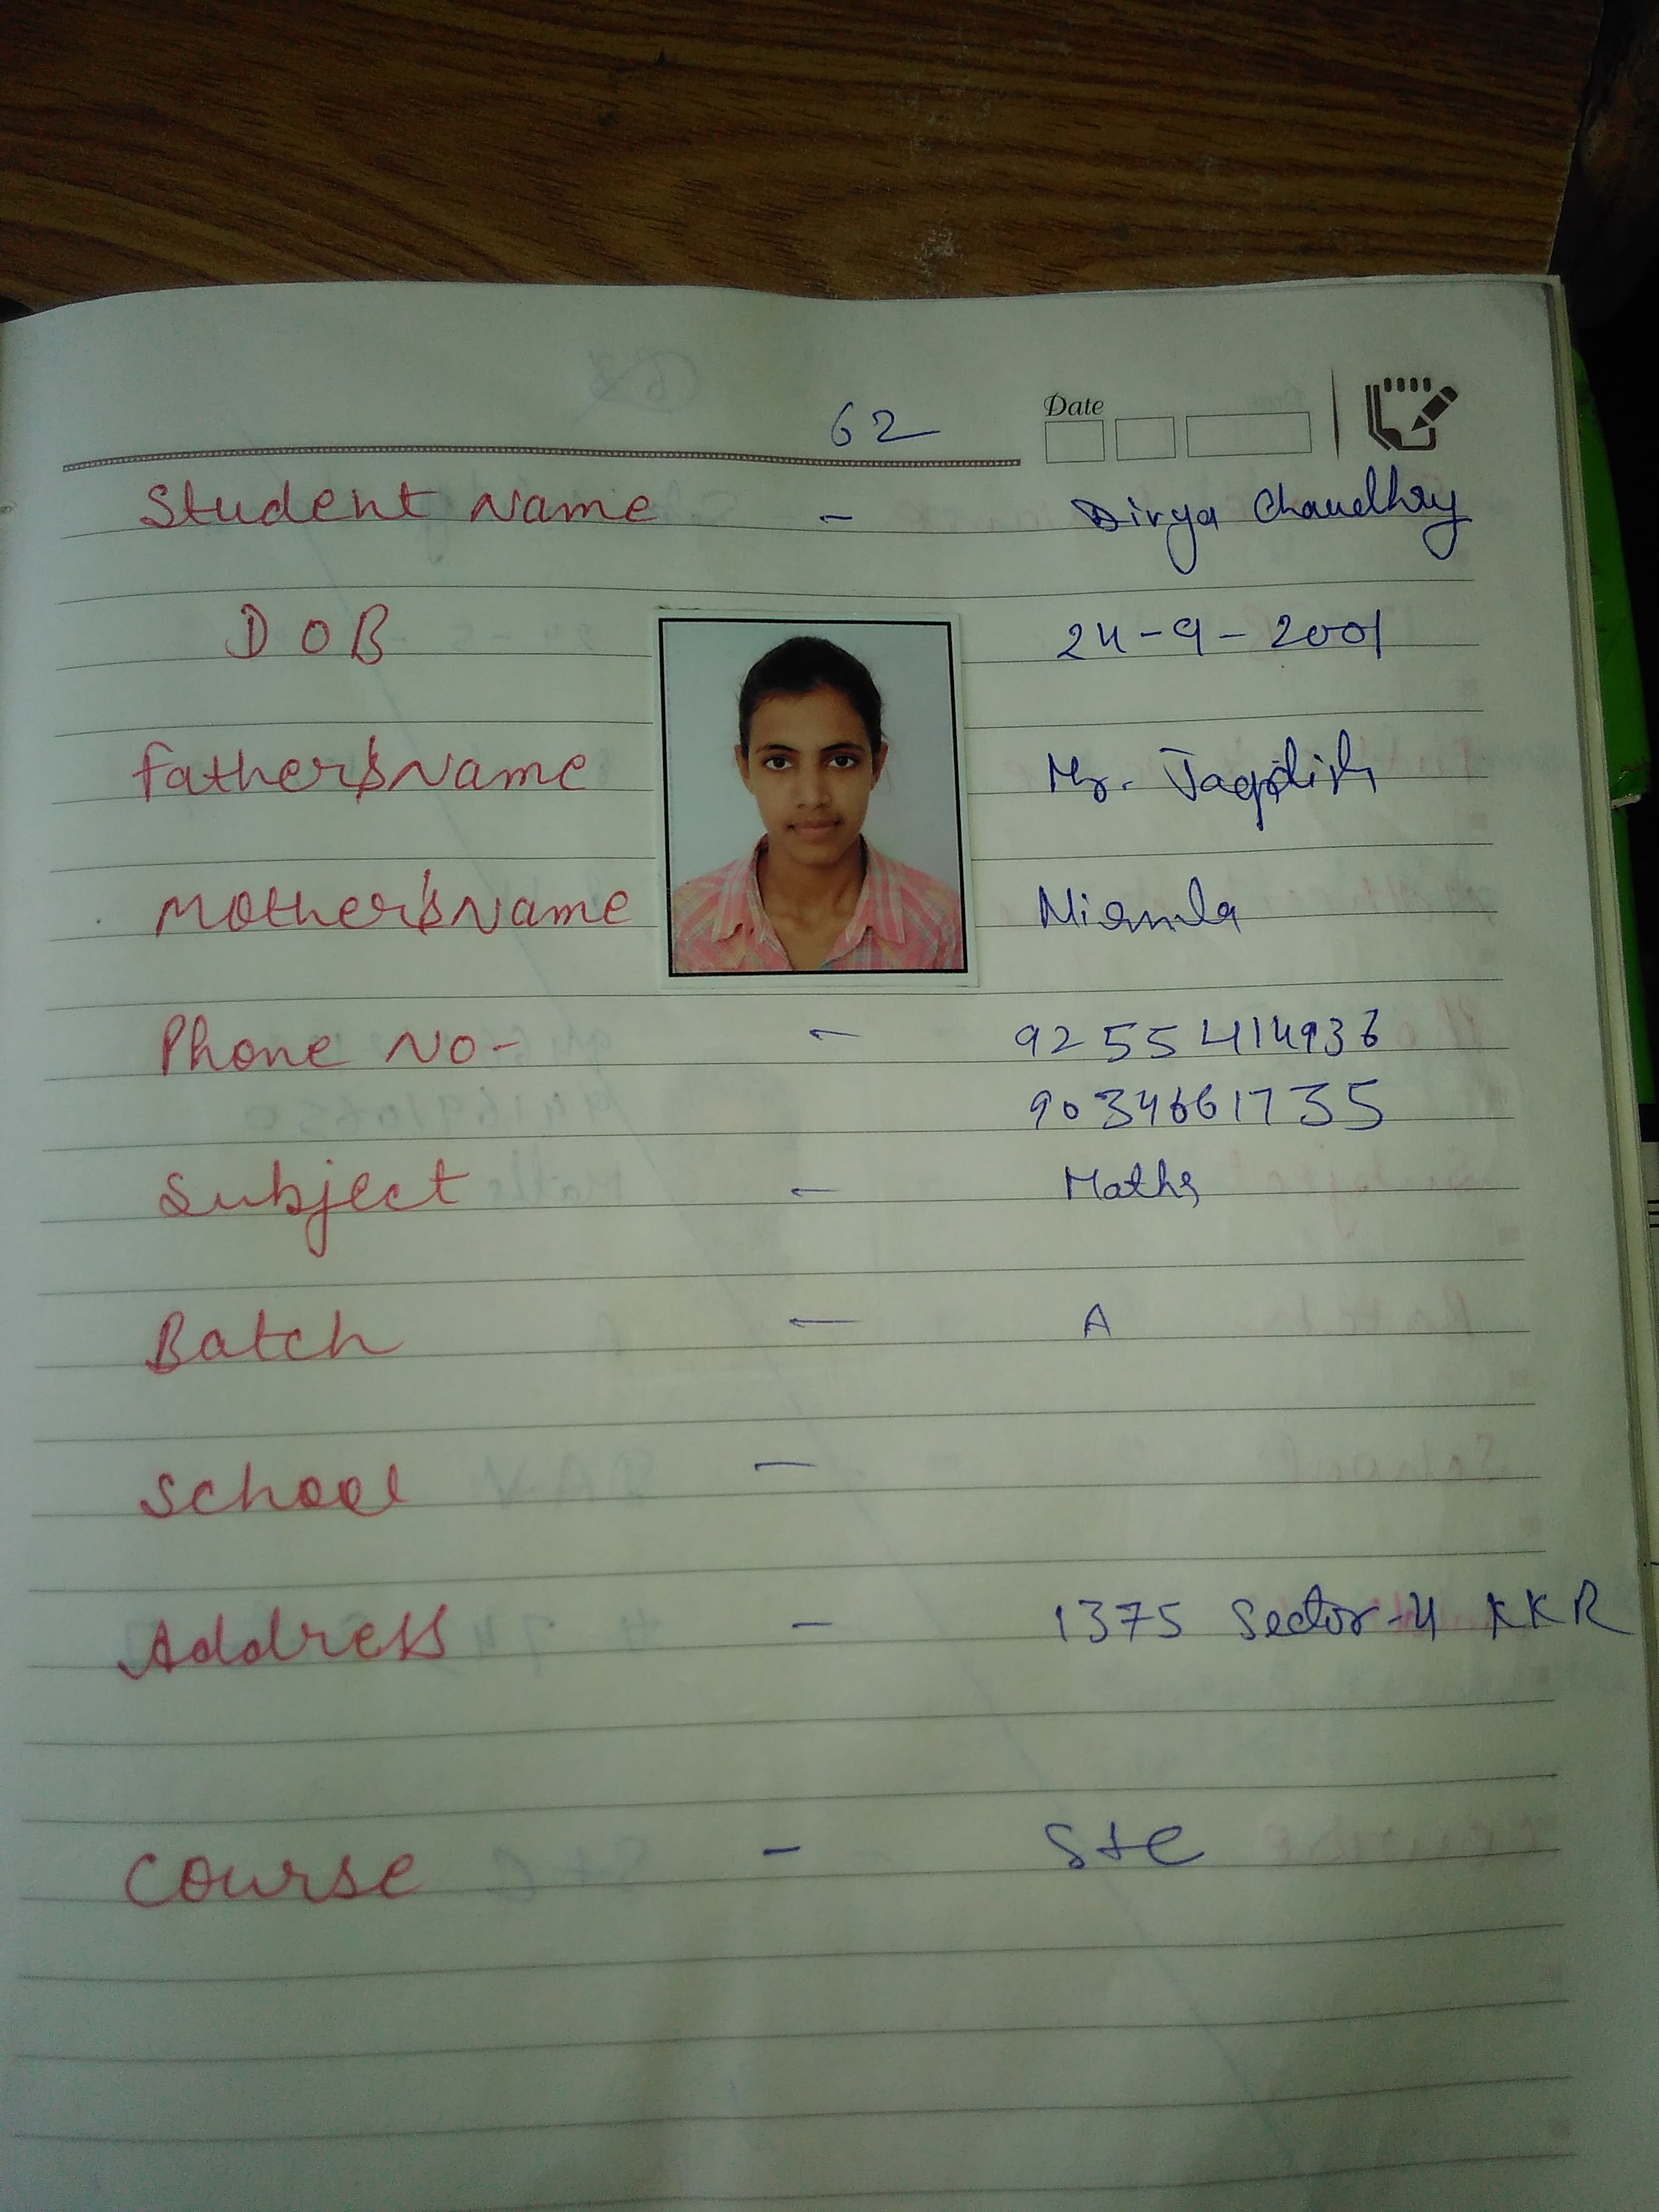 62
Date
Student Name - Divya Chaudhry
DOB 24-9-2001
Father's Name Mr. Jagdish
Mother's Name Nirmla
Phone No- - 9255414936
9034661735
Subject - Maths
Batch - A
School -
Address - 1375 Sector-4 KKR
Course - S+C